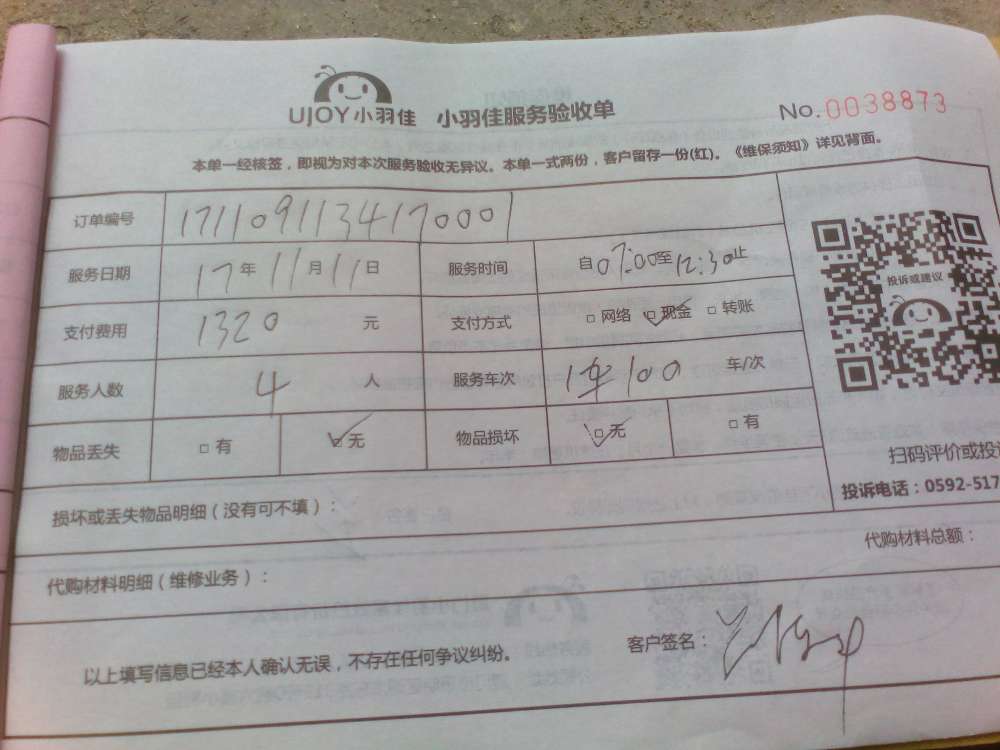 UJOY小羽佳 小羽佳服务验收单 No.0038873
本单一经核签，即视为对本次服务验收无异议。本单一式两份，客户留存一份(红)。《维保须知》详见背面。
订单编号 1711091134170001
服务日期 17年11月11日 服务时间 自07:00至12:30止
投诉或建议
支付费用 1320 元 支付方式 □网络 □现金 □转账
服务人数 4 人 服务车次 1车100 车/次
物品丢失 □有 □无 物品损坏 □无 □有
扫码评价或投
投诉电话：0592-517
损坏或丢失物品明细（没有可不填）：
代购材料总额：
代购材料明细（维修业务）：
客户签名：
以上填写信息已经本人确认无误，不存在任何争议纠纷。